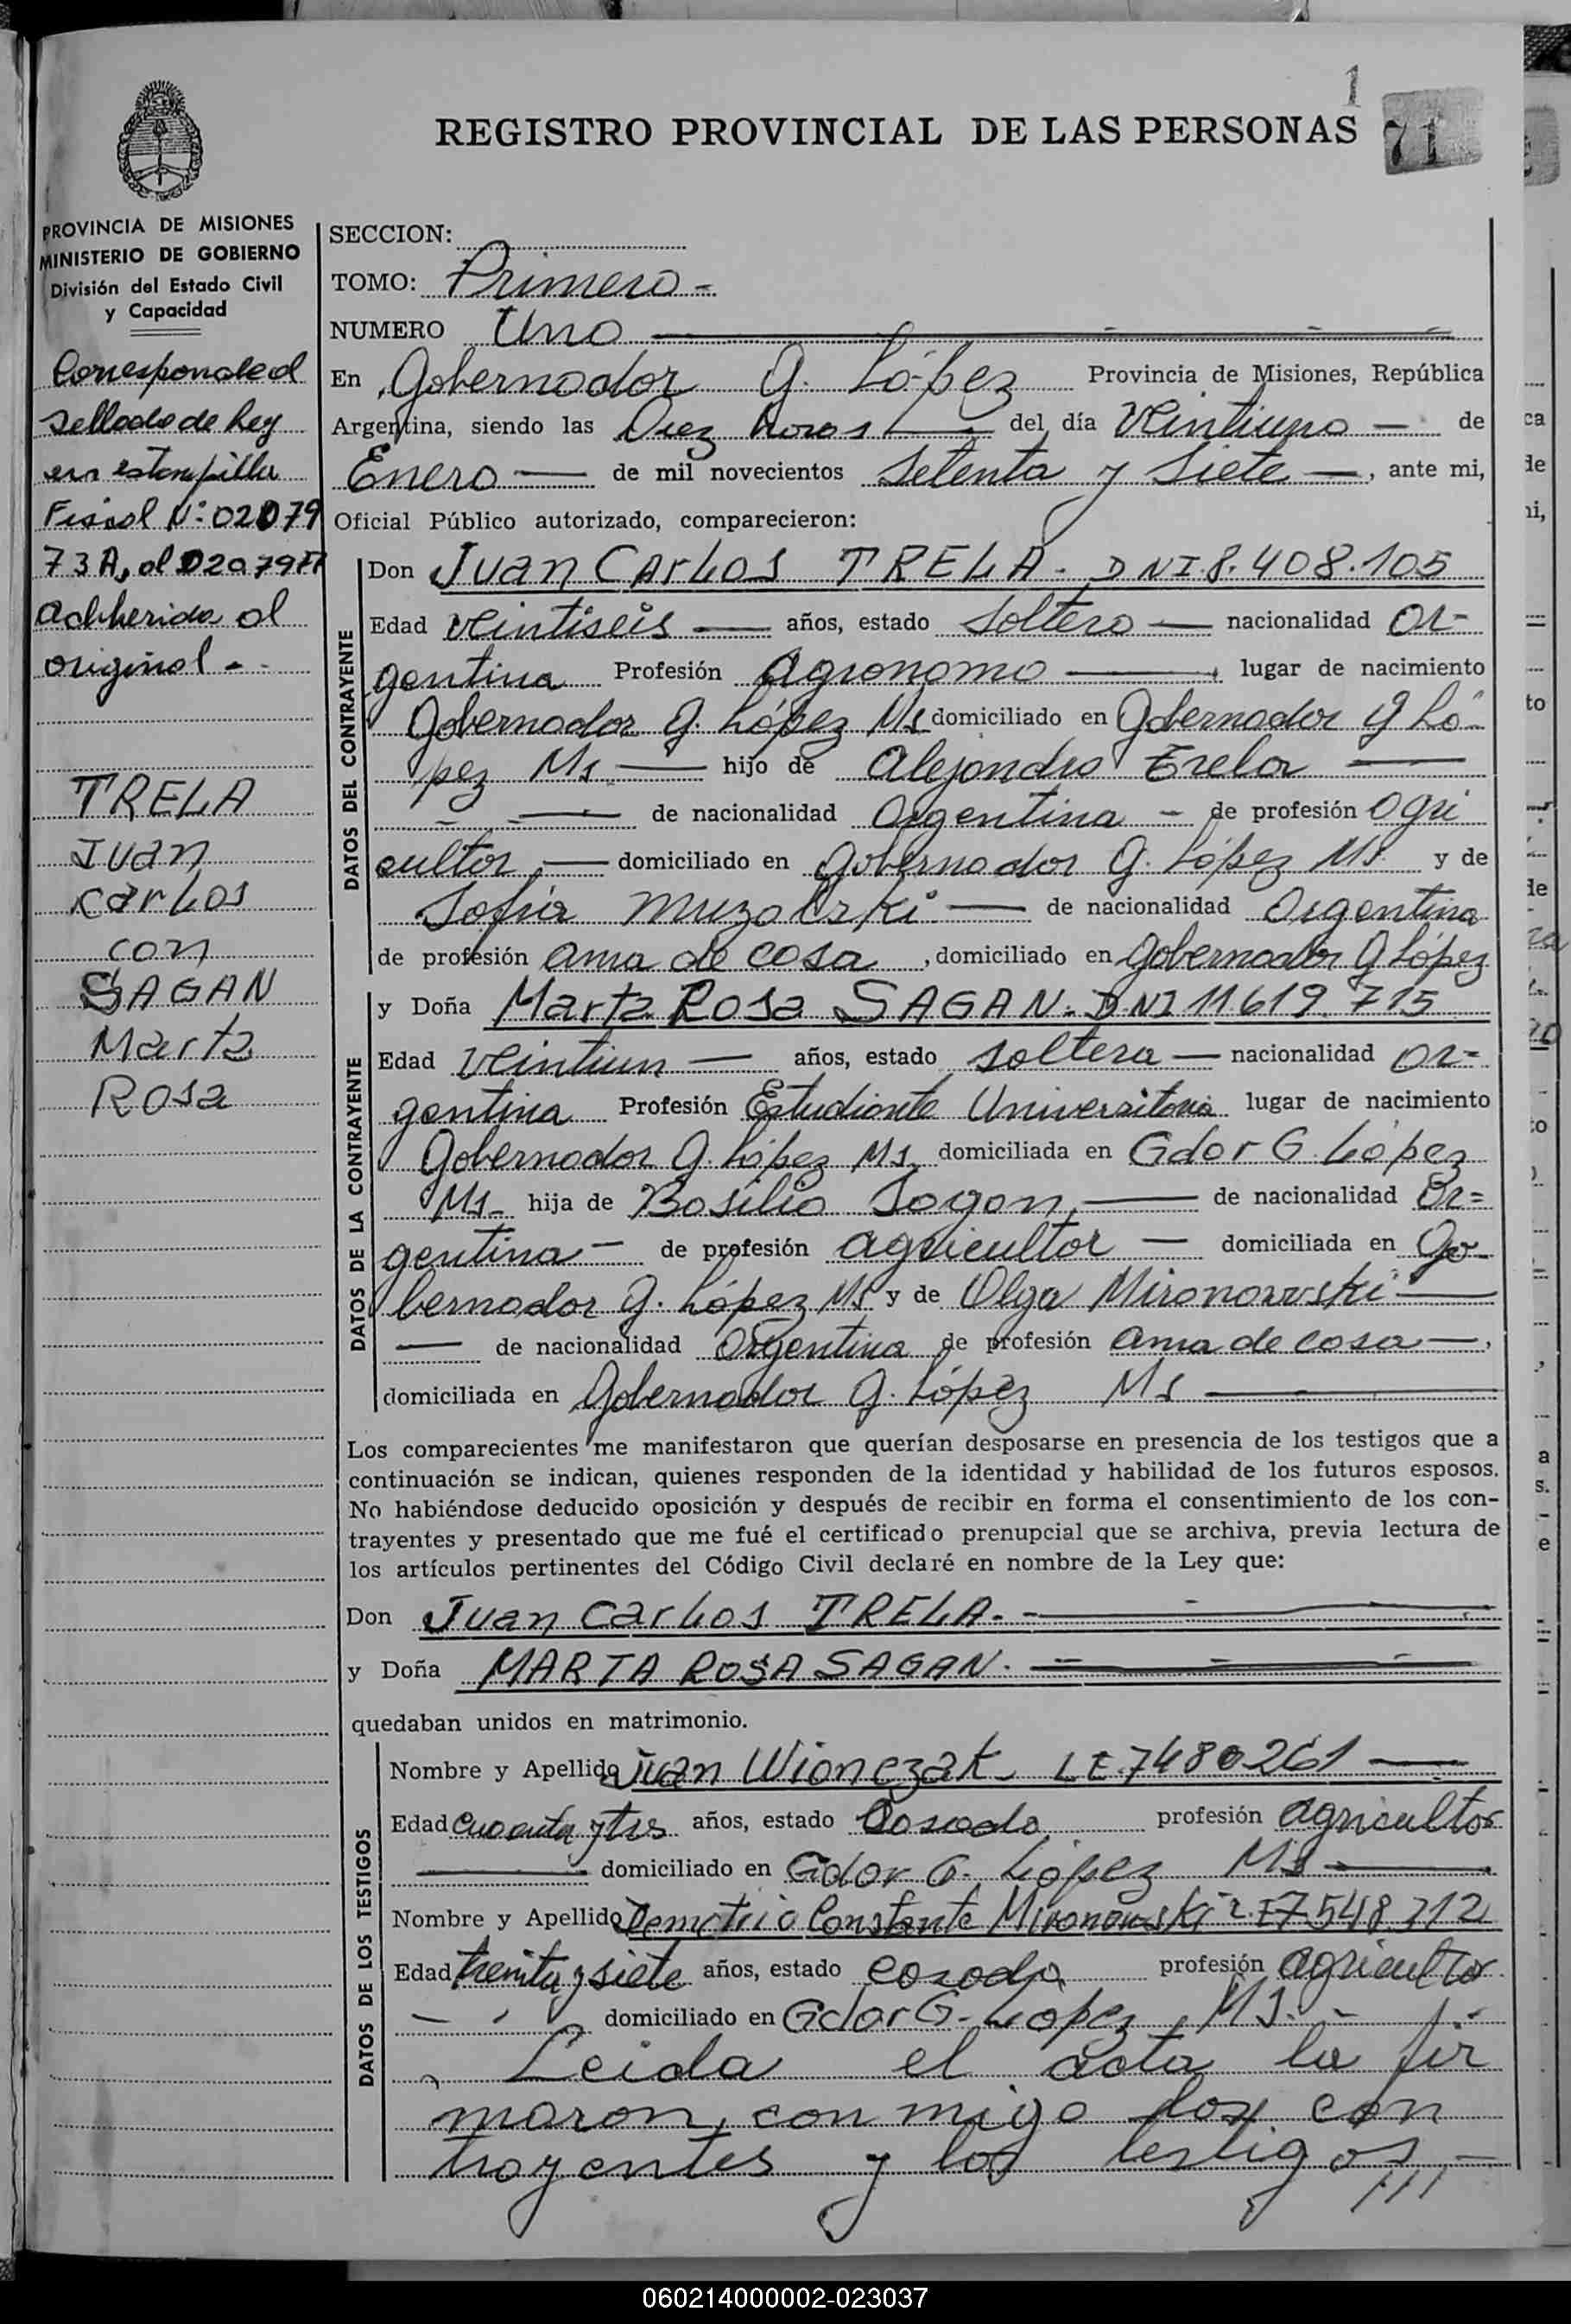 1
REGISTRO PROVINCIAL DE LAS PERSONAS
71
PROVINCIA DE MISIONES
MINISTERIO DE GOBIERNO
División del Estado Civil
y Capacidad
Corresponded
sellado de Ley
en estampilla
Fiscal Nº 02079
73 A, al
adhherida al
original -
TRELA
Juan
Carlos
con
SAGAN
Marta
Rosa
SECCION:
TOMO: Primero -
NUMERO Uno
En Gobernador G. López Provincia de Misiones, República
Argentina, siendo las Diez horas del día Veintiuno - de
Enero - de mil novecientos setenta y siete -, ante mi,
Oficial Público autorizado, comparecieron:
DATOS DEL CONTRAYENTE
Don Juan Carlos TRELA - DNI. 8.408.105
Edad veintiseis - años, estado soltero - nacionalidad Ar-
gentina Profesión agronomo -, lugar de nacimiento
Gobernador G. López Ms domiciliado en Gobernador G Ló-
pez Ms - hijo de Alejandro Trela -
- - de nacionalidad Argentina - de profesión agri
cultor - domiciliado en Gobernador G. López Ms. y de
Sofia - de nacionalidad Argentina
de profesión ama de casa, domiciliado en Gobernador G López
DATOS DE LA CONTRAYENTE
y Doña Marta Rosa SAGAN - DNI 11.619.715
Edad veintiun - años, estado soltera - nacionalidad Ar-
gentina Profesión Estudiante Universitaria lugar de nacimiento
Gobernador G. López Ms. domiciliada en Gdor G. López
Ms - hija de Basilio Sagan, - de nacionalidad Ar=
gentina - de profesión agricultor - domiciliada en Go-
bernador G. López Ms y de Olga Mironowski -
- de nacionalidad Argentina de profesión ama de casa -,
domiciliada en Gobernador G. López Ms -
Los comparecientes me manifestaron que querían desposarse en presencia de los testigos que a
continuación se indican, quienes responden de la identidad y habilidad de los futuros esposos.
No habiéndose deducido oposición y después de recibir en forma el consentimiento de los con-
trayentes y presentado que me fué el certificado prenupcial que se archiva, previa lectura de
los artículos pertinentes del Código Civil declaré en nombre de la Ley que:
Don Juan Carlos TRELA. -
y Doña MARTA ROSA SAGAN. -
quedaban unidos en matrimonio.
DATOS DE LOS TESTIGOS
Nombre y Apellido Juan Wionczak - LE 7480261 -
Edad cuarenta y tres años, estado Casado profesión agricultor
- domiciliado en Gdor G. López Ms -
Nombre y Apellido Demetrio Constante Mironowski LE 7.548.312
Edad treinta y siete años, estado casado profesión agricultor
- domiciliado en Gdor G. López Ms. -
Leida el acta la fir
maron conmigo los con
trayentes y los testigos -
///
060214000002-023037